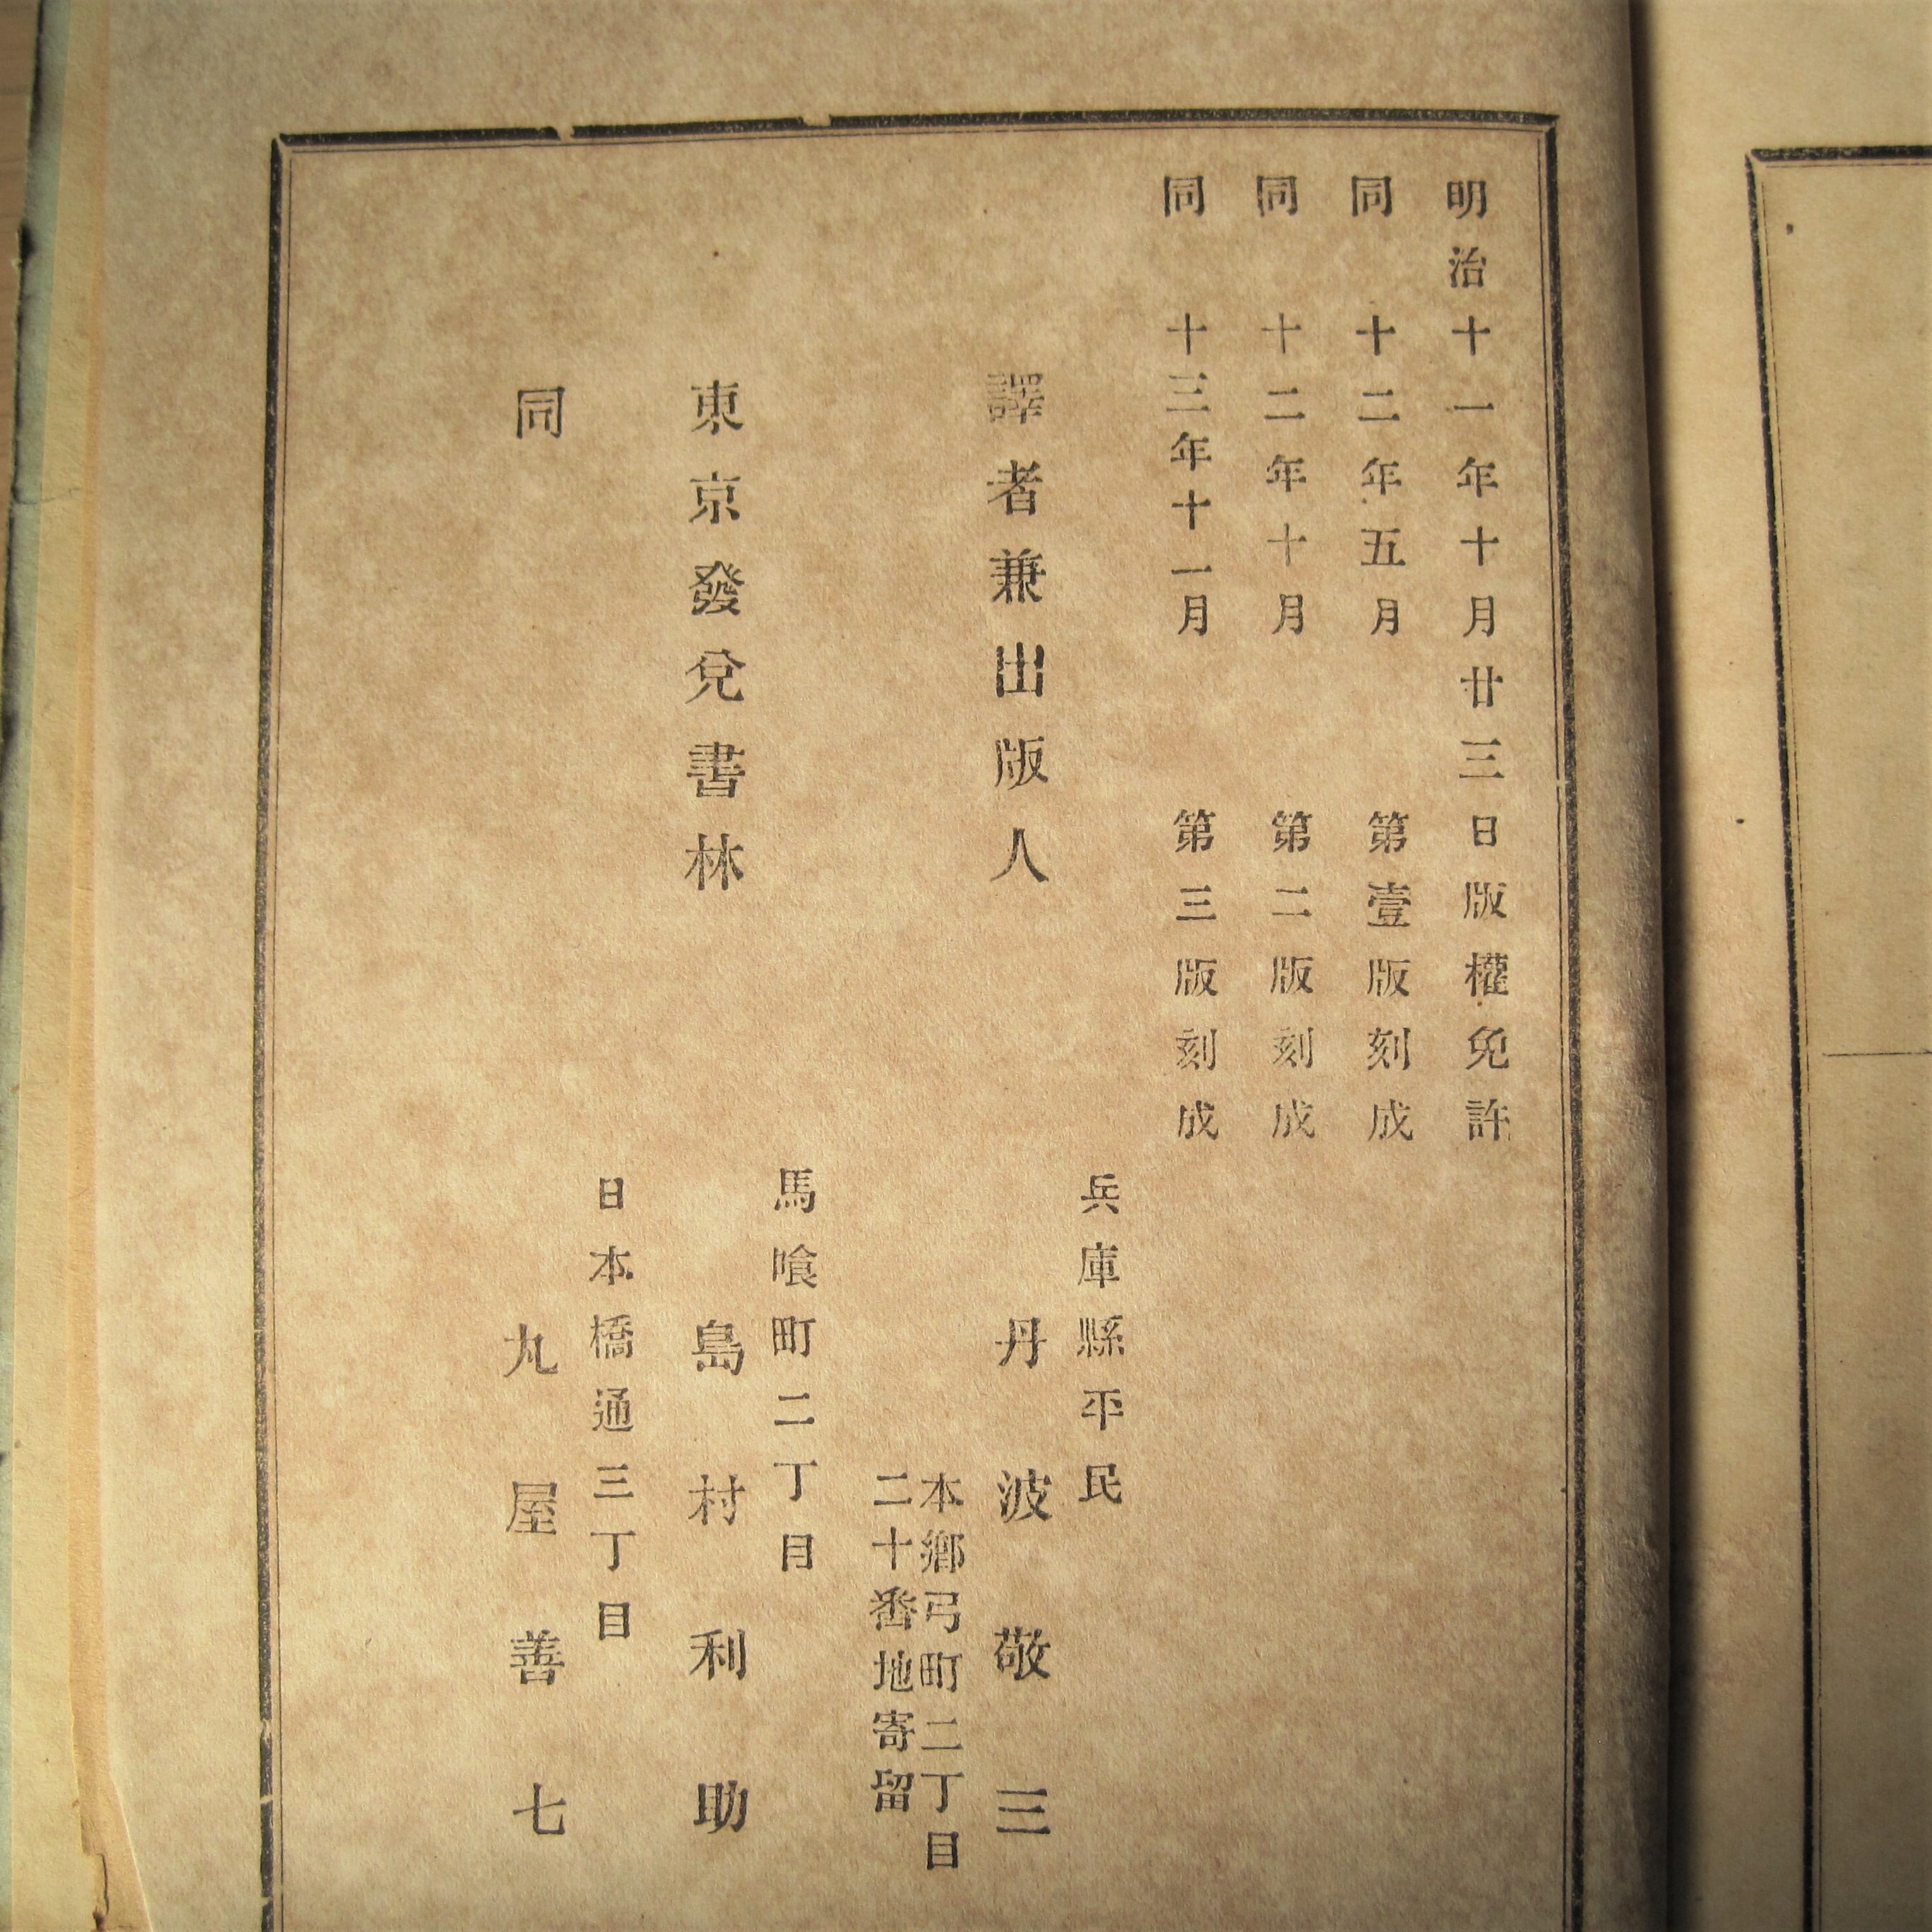 明治十一年十月廿三日版權免許
同 十二年五月 第壹版刻成
同 十二年十月 第二版刻成
同 十三年十一月 第三版刻成
兵庫縣平民
譯者兼出版人 丹波敬三
本鄉弓町二丁目
二十番地寄留
馬喰町二丁目
東京發兌書林 島村利助
日本橋通三丁目
同 丸屋善七